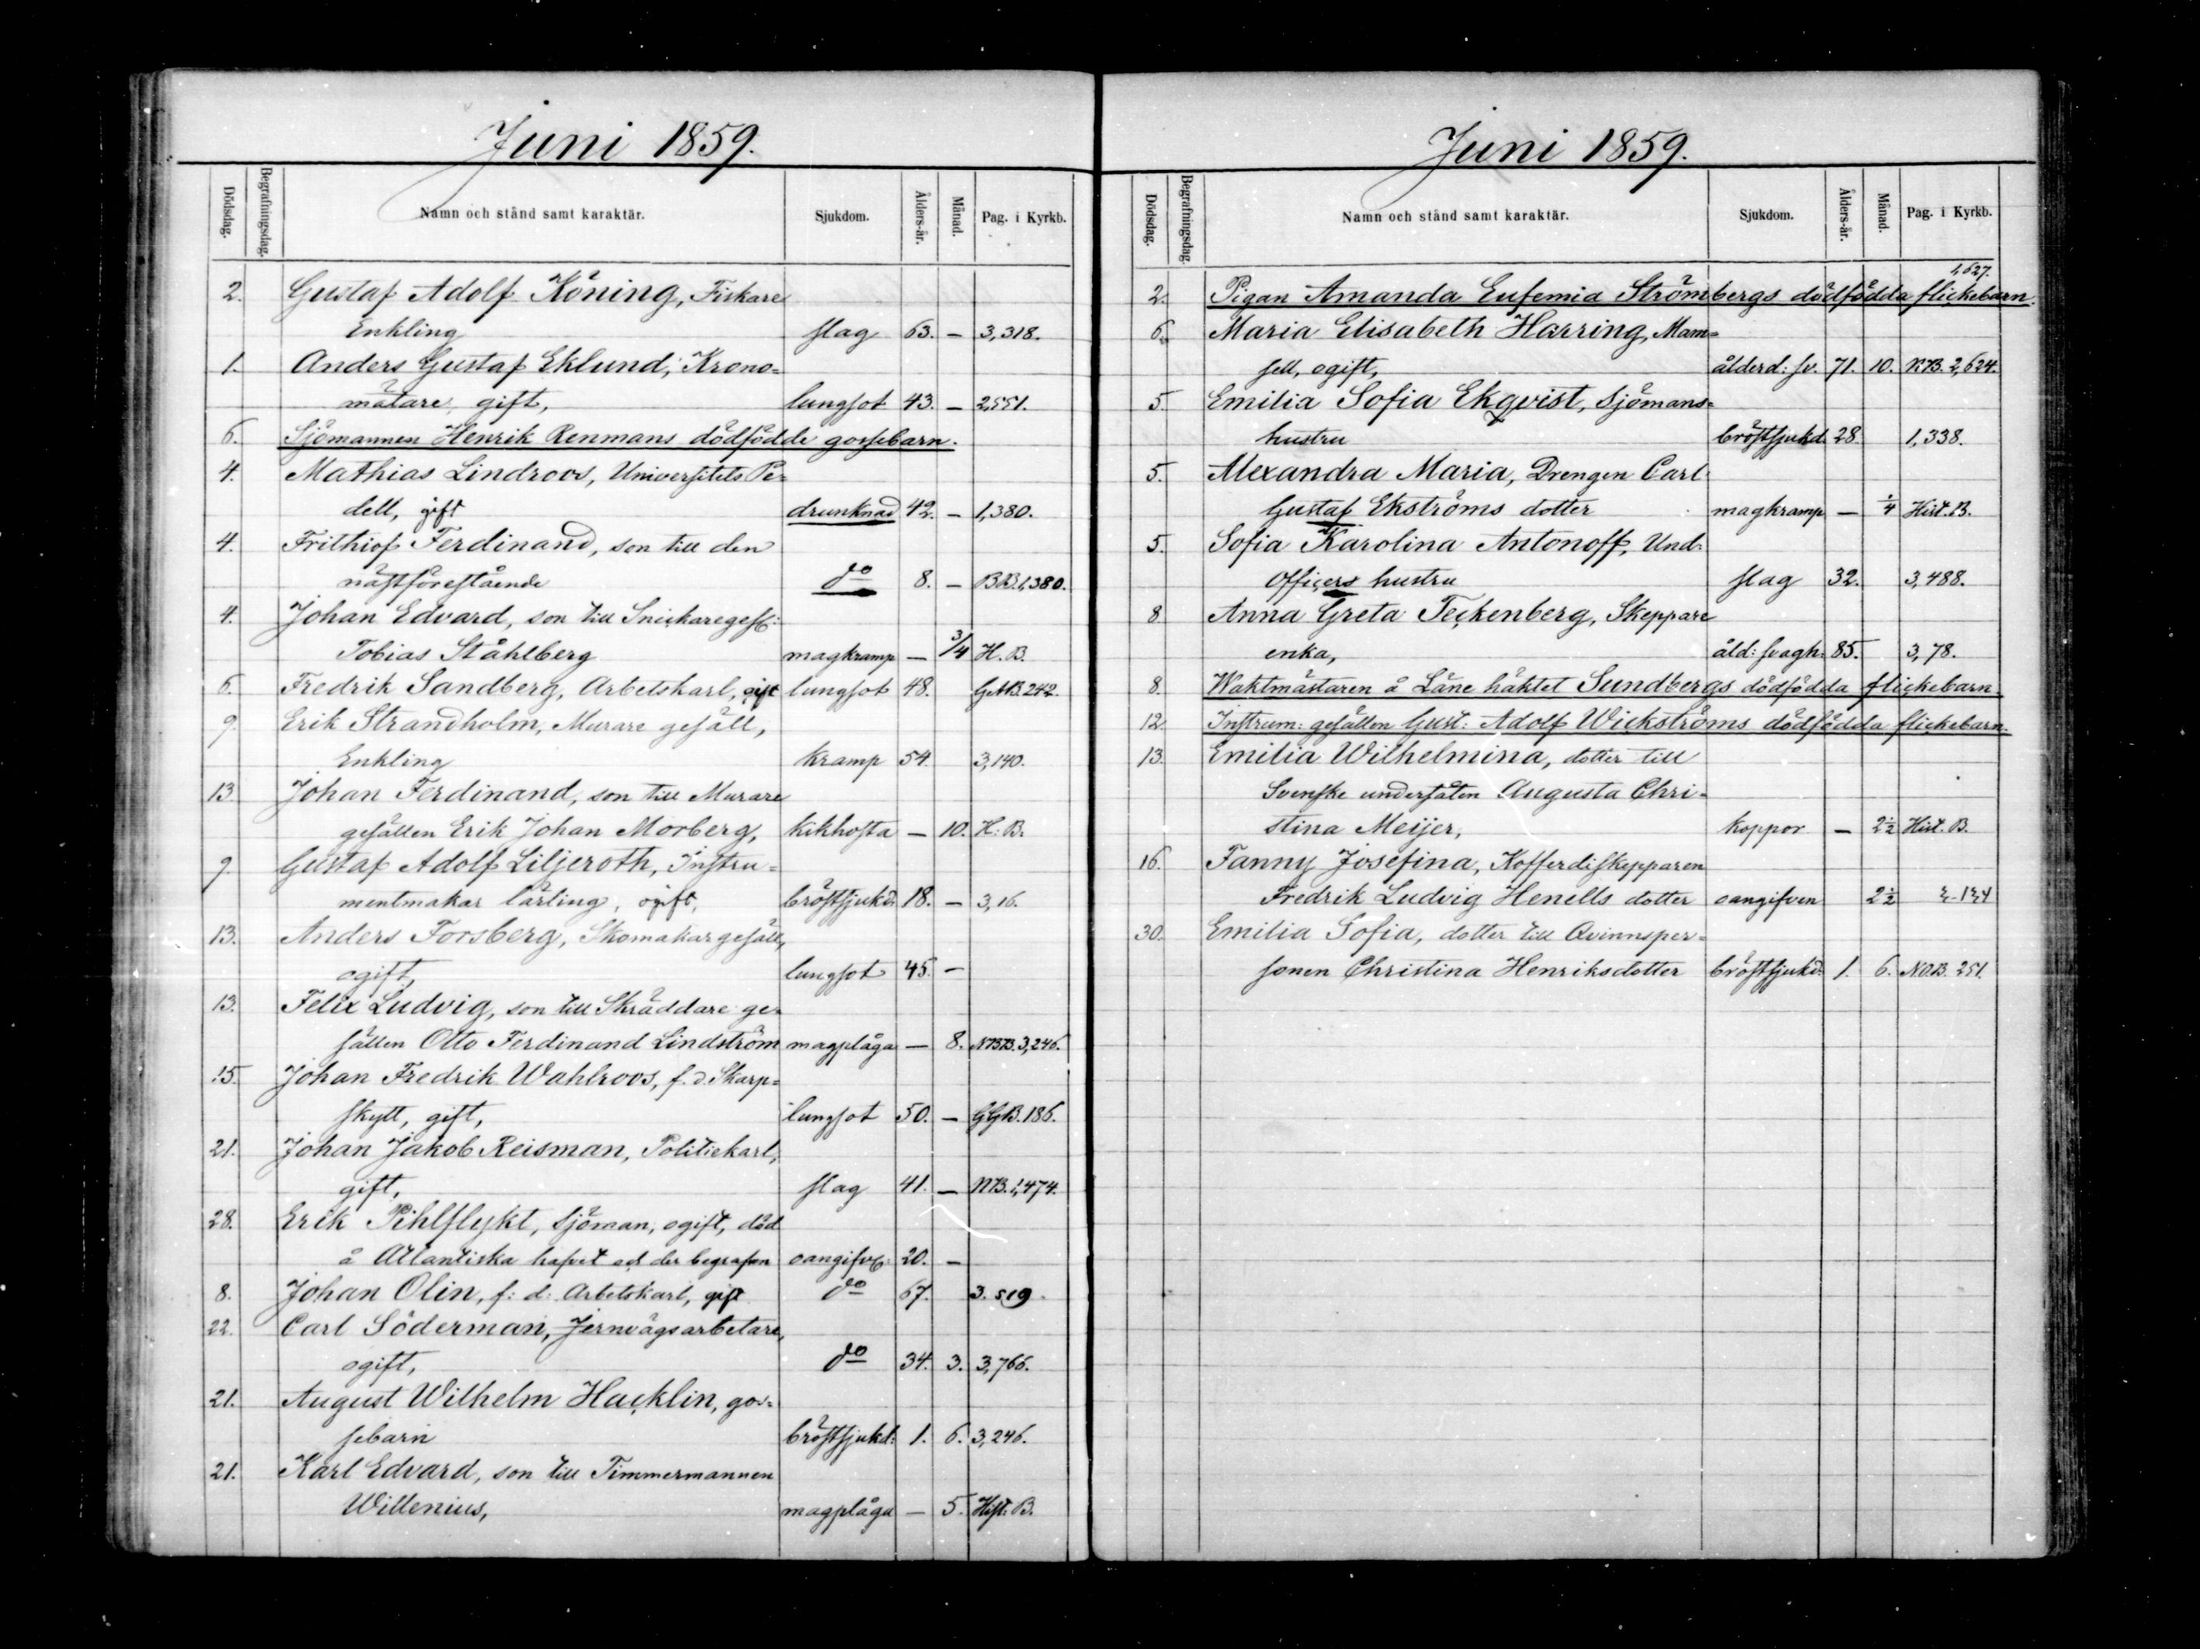 Juni 1859.
Dödsdag. Begrafningsdag. Namn och stånd samt karaktär. Sjukdom. Ålders-år. Månad. Pag. i Kyrkb.
2. Gustaf Adolf Köning, Fiskare
Enkling slag 63. — 3,318.
1. Anders Gustaf Eklund, Krono-
mätare, gift, lungsot 43. — 2,551.
6. Sjömannen Henrik Renmans dödfödde gossebarn.
4. Mathias Lindroos, Universitets Pe-
dell, gift drunknad 42. — 1,380.
4. Frithiof Ferdinand, son till den
nästföregående do 8. — BB.1,380.
4. Johan Edvard, son till Snickaregesl:
Tobias Ståhlberg magkramp — 3/4 H. B.
6. Fredrik Sandberg, Arbetskarl, gift lungsot 48. 242.
9. Erik Strandholm, Murare gesäll,
Enkling kramp 54. 3,140.
13. Johan Ferdinand, son till Murare
gesällen Erik Johan Morberg, kikhosta — 10. H: B.
9. Gustaf Adolf Liljeroth, Instru-
mentmakar lärling, ogift, bröstsjukd: 18. — 3,16.
13. Anders Forsberg, Skomakargesäll,
ogift, lungsot 45. —
13. Felix Ludvig, son till Skräddare ge-
sällen Otto Ferdinand Lindström magplåga — 8. NBB. 3,246.
15. Johan Fredrik Wahlroos, f. d. Skarp-
skytt, gift, lungsot 50. — GGB. 186.
21. Johan Jakob Reisman, Politiekarl,
gift, slag 41. — NB. 1,474.
28. Erik Pihlflykt, Sjöman, ogift, död
å Atlantiska hafvet och der begrafven oangifv: 20. —
8. Johan Olin, f: d: Arbetskarl, gift do 67. 3. 519.
22. Carl Söderman, Jernvägsarbetare,
ogift, do 34. 3. 3,766.
21. August Wilhelm Hacklin, gos-
sebarn bröstsjukd: 1. 6. 3,246.
21. Karl Edvard, son till Timmermannen
Willenius, magplåga — 5. Hist. B.
Juni 1859.
Dödsdag. Begrafningsdag. Namn och stånd samt karaktär. Sjukdom. Ålders-år. Månad. Pag. i Kyrkb.
1,627.
2. Pigan Amanda Eufemia Strömbergs dödfödda flickebarn.
6. Maria Elisabeth Harring, Mam-
sell, ogift, ålderd: sv. 71. 10. NB. 2,624.
5. Emilia Sofia Ekqvist, Sjömans-
hustru bröstsjukd. 28. 1,338.
5. Alexandra Maria, Drengen Carl
Gustaf Ekströms dotter magkramp — 1/4 Hist. B.
5. Sofia Karolina Antonoff, Und:
Officers hustru slag 32. 3,488.
8 Anna Greta Teckenberg, Skeppare
enka, åld: svagh: 85. 3,78.
8. Waktmästaren å Läne häktet Sundbergs dödfödda flickebarn.
12. Instrum: gesällen Gust: Adolf Wickströms dödfödda flickebarn.
13. Emilia Wilhelmina, dotter till
Svenske undersåten Augusta Chri-
stina Meijer, koppor — 2 1/2 Hist. B.
16. Fanny Josefina, Kofferdiskepparen
Fredrik Ludvig Henells dotter oangifven 2 1/2
30. Emilia Sofia, dotter till Qvinnsper-
sonen Christina Henriksdotter bröstsjukd: 1. 6. NOB. 251.